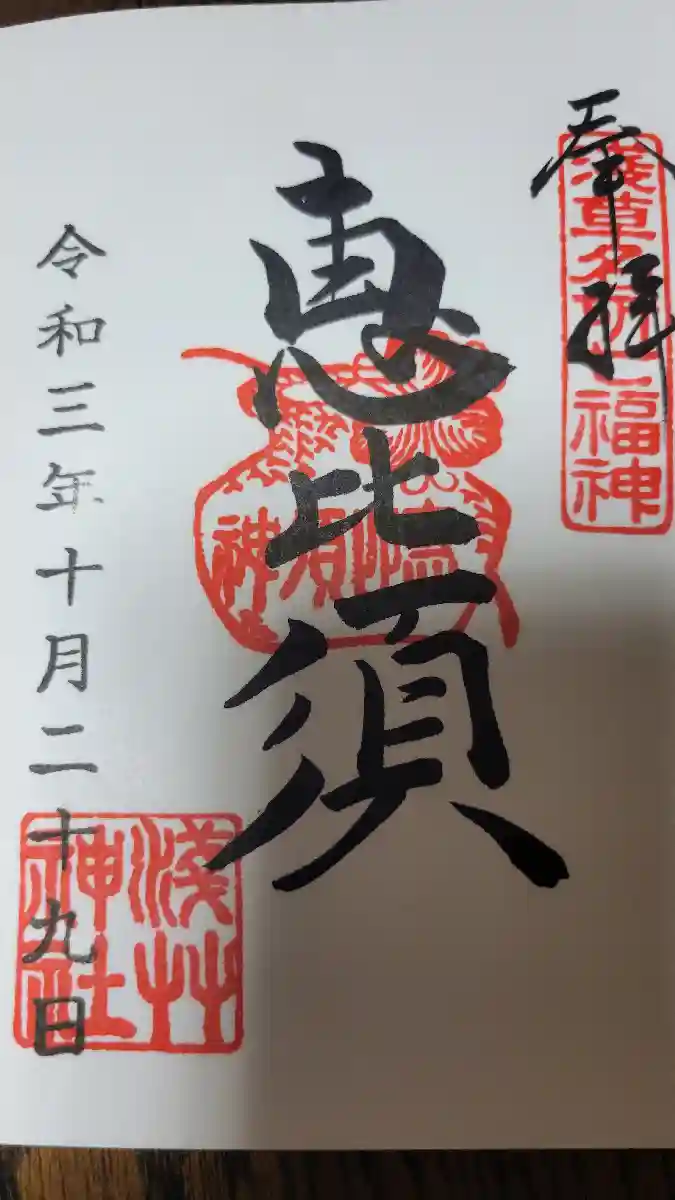 奉拝
淺草名所七福神
恵比須
令和三年十月二十九日
淺草神社